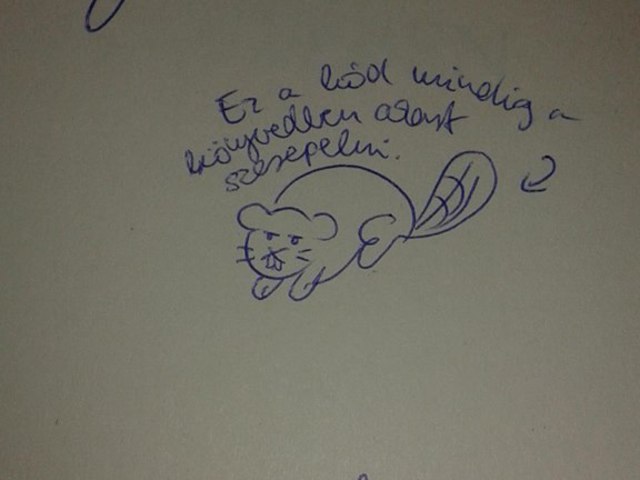 Ez a hód mindig a
könyvedben akart
szerepelni.